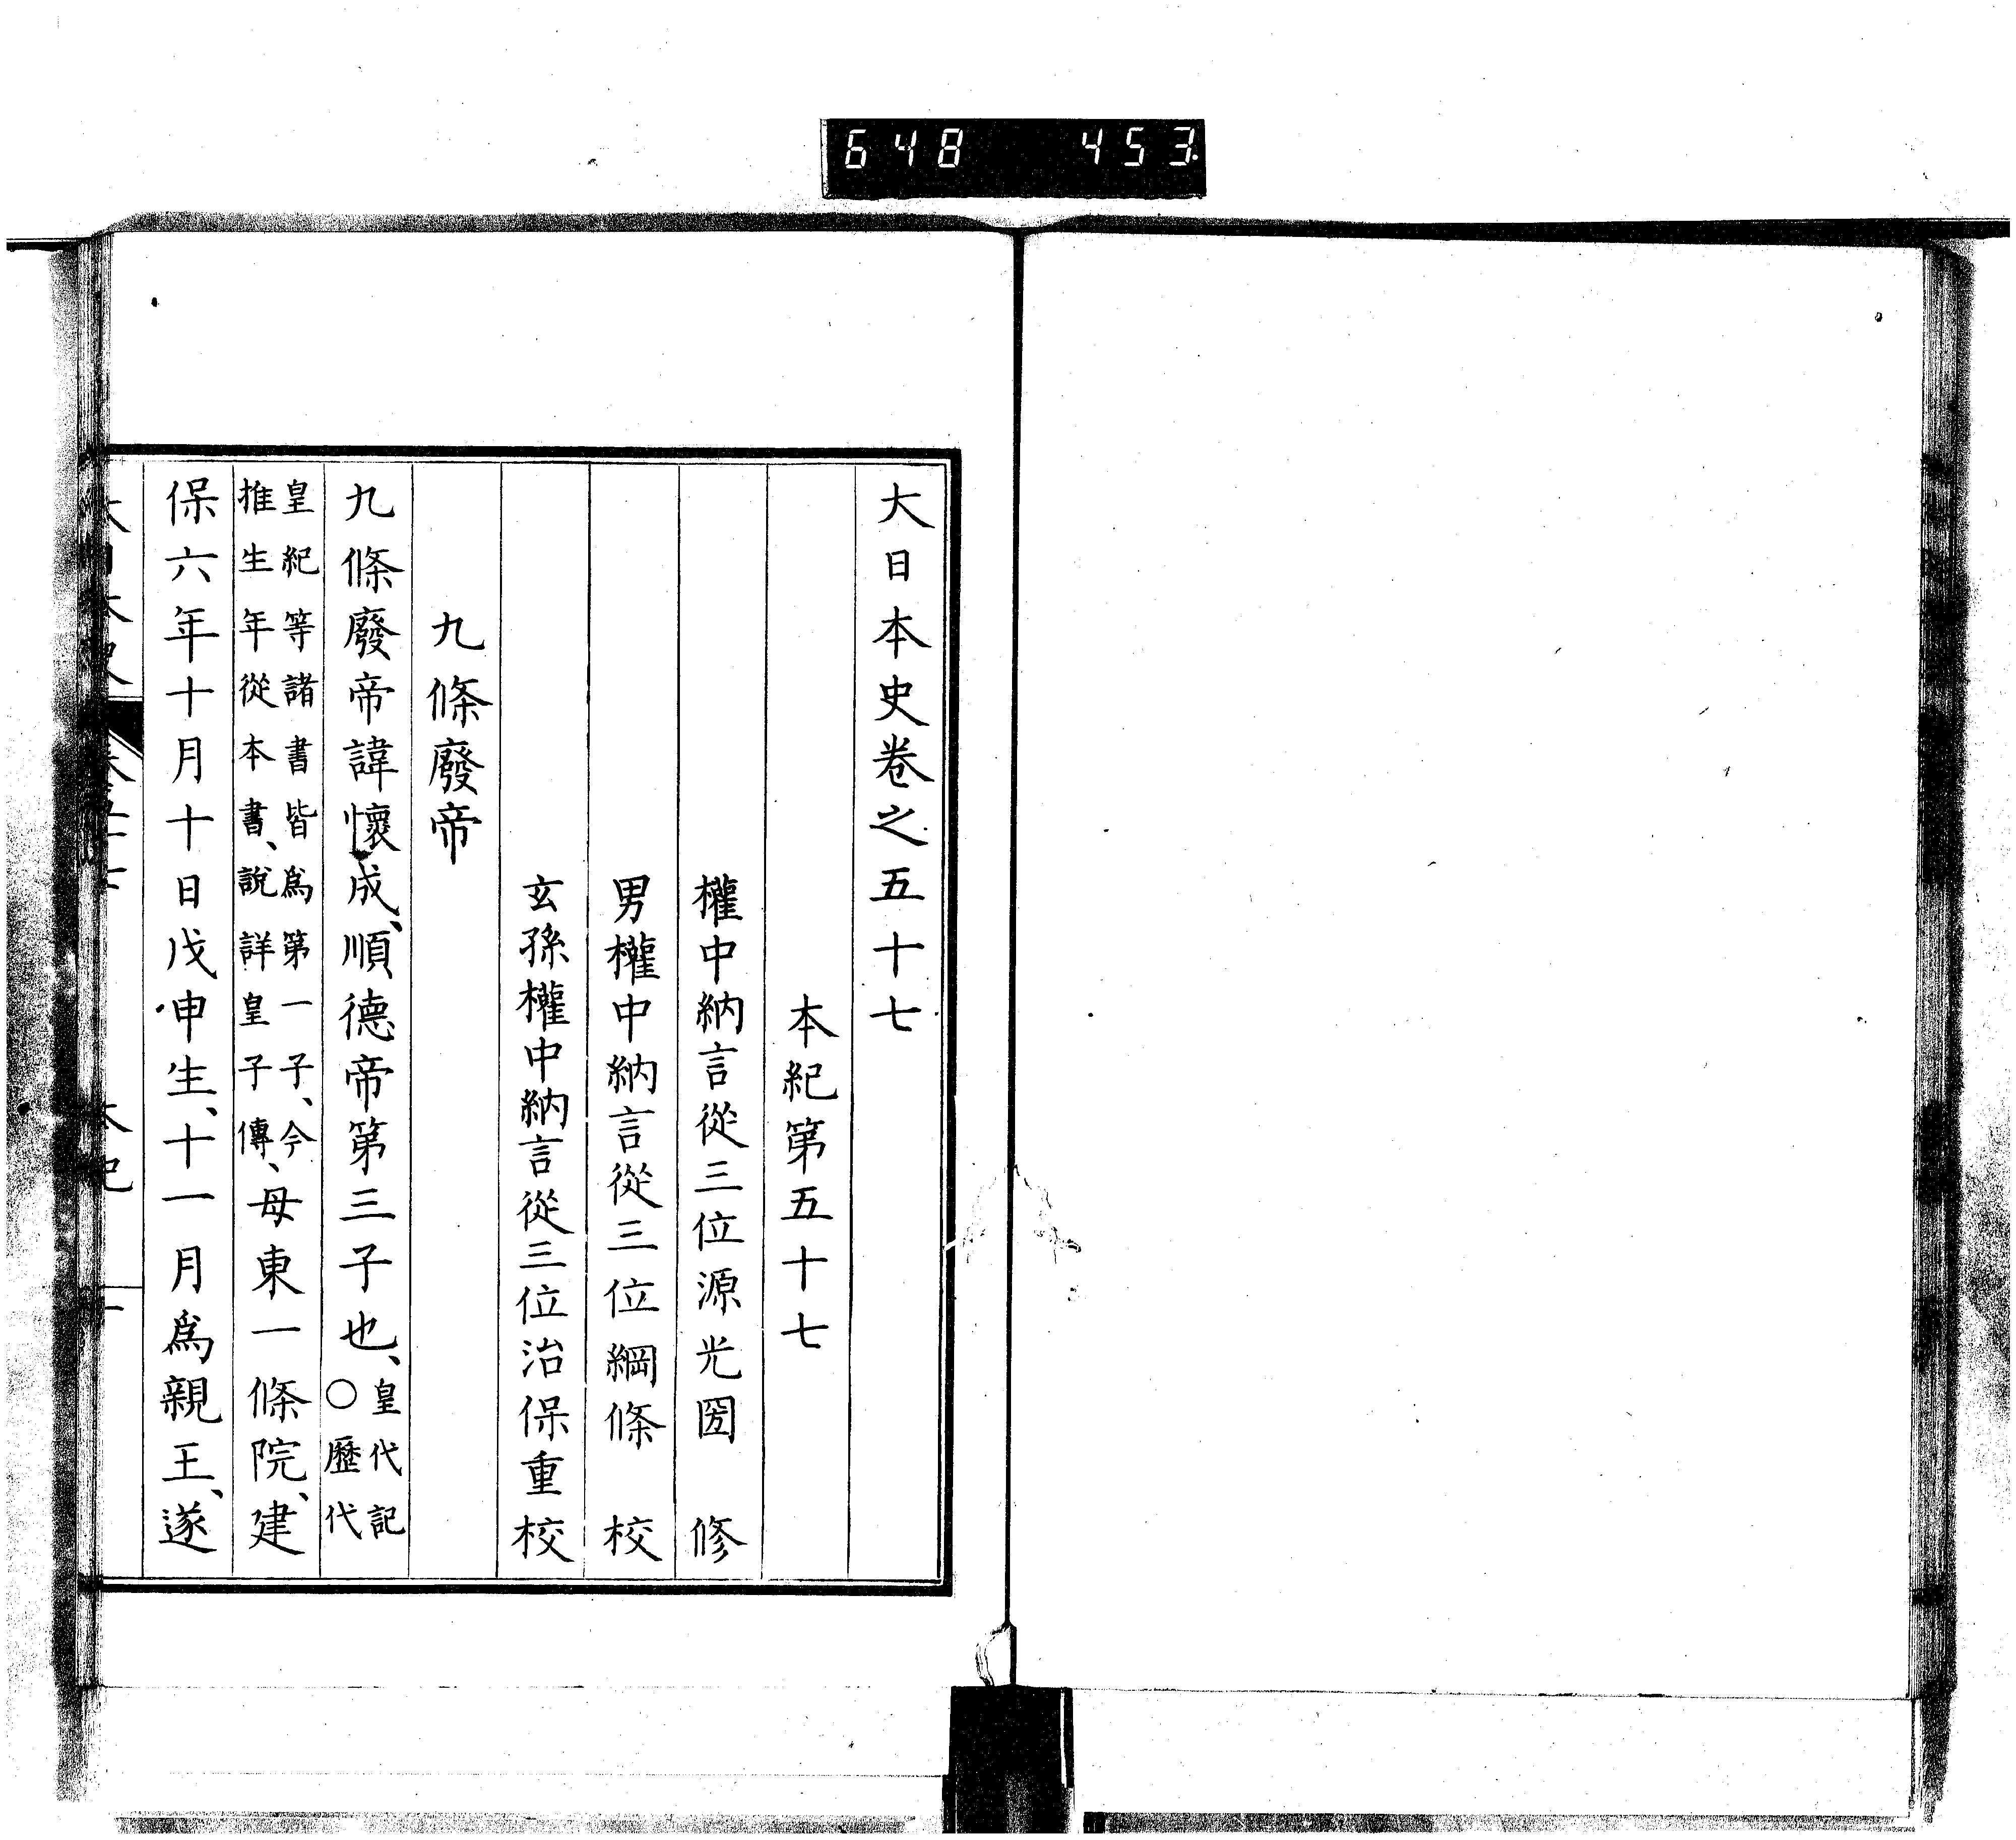 648 453
大日本史卷之五十七
本紀第五十七
權中納言從三位源光圀 修
男權中納言從三位綱條 校
玄孫權中納言從三位治保重校
九條廢帝
九條廢帝諱懷成、順德帝第三子也、皇代記○歷代
皇紀等諸書皆爲第一子、今推生年從本書、說詳皇子傳、母東一條院、建
保六年十月十日戊申生、十一月爲親王、遂